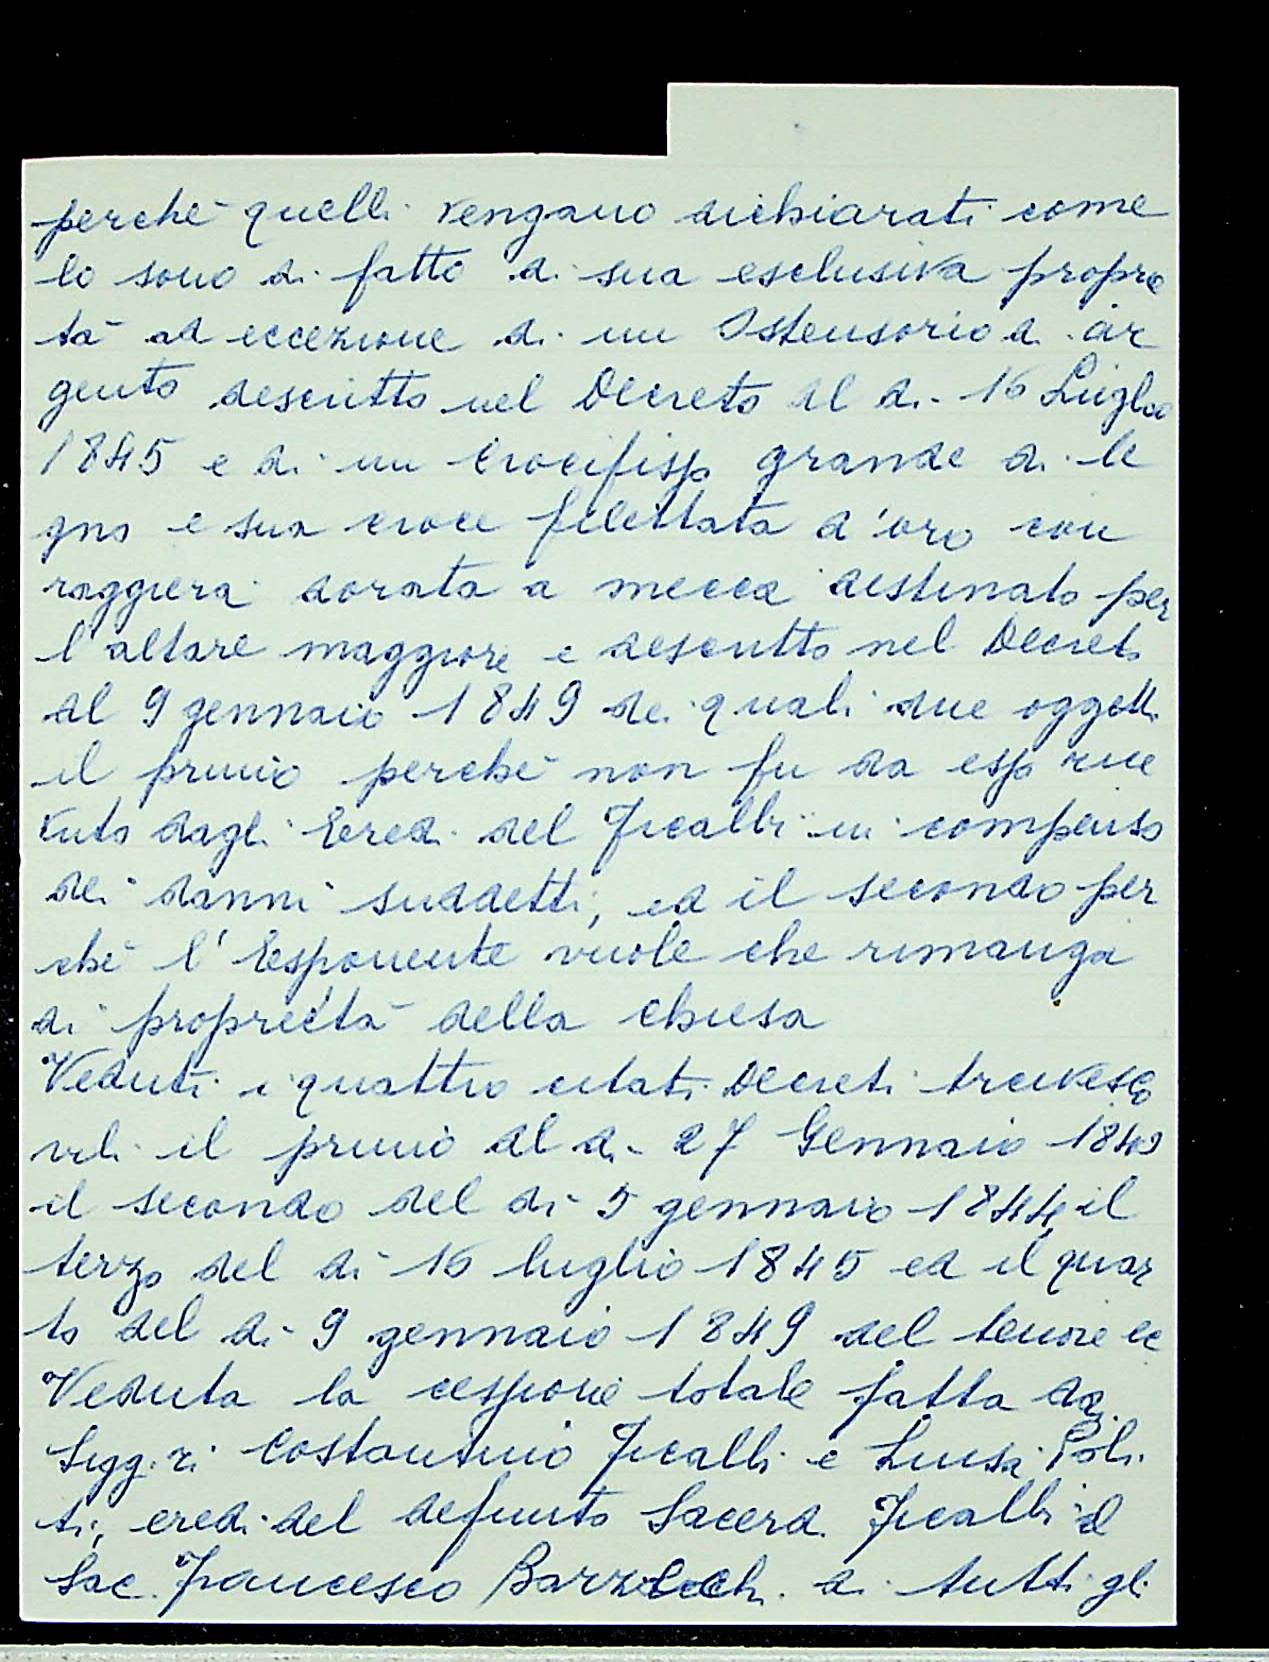 perchè quelli vengano dichiarati come
lo sono di fatto di sua esclusiva proprie
tà ad eccezione di un Ostensorio di ar
gento descritto nel Decreto del dì 16 Luglio
1845 e di un Crocifisso grande di le
gno e sua croce filettata d'oro con
raggiera dorata a mecca destinato per
l'altare maggiore e descritto nel Decreto
del 9 gennaio 1849 dei quali due oggetti
il primo perchè non fu da esso rice
vuto dagli Eredi del Ficalbi in compenso
dei danni suddetti, ed il secondo per
chè l'Esponente vuole che rimanga
di proprietà della chiesa
Veduti i quattro citati Decreti Arcivesco
vili il primo del dì 27 Gennaio 184
il secondo del dì 5 gennaio 1844, il
terzo del dì 16 luglio 1845 ed il quar
to del dì 9 gennaio 1849 del tenore ec
Veduta la cessione totale fatta da
Sigg.ri Costantino Ficalbi e Luisa Poli
ti, eredi del defunto Sacerd. Ficalbi al
Sac. Francesco di tutti gli